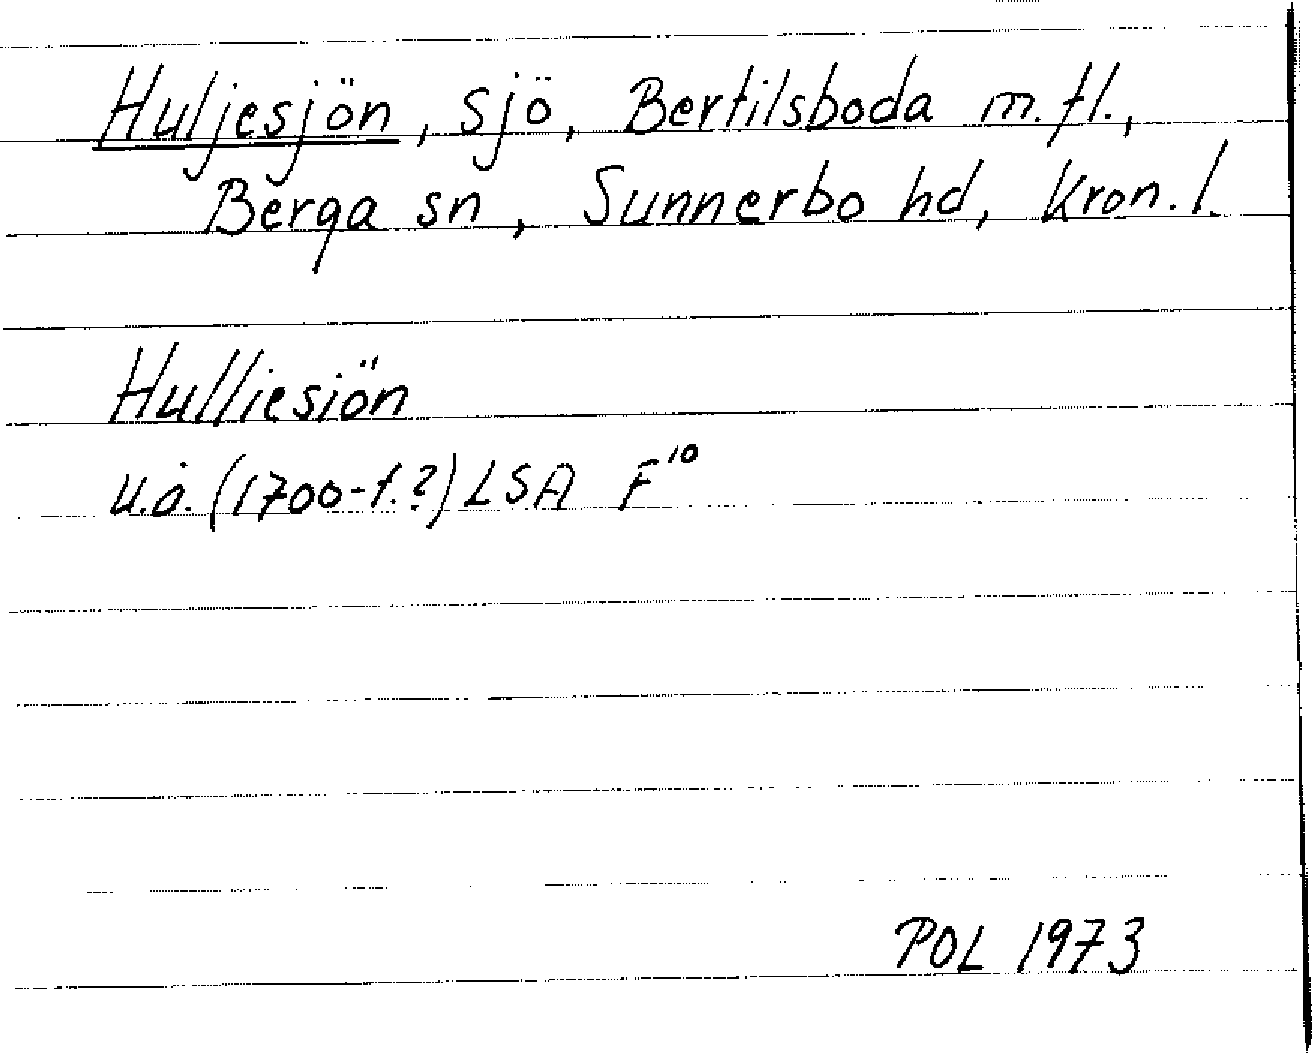 Huljesjön, sjö, Bertilsboda m.fl.,
Berga sn, Sunnerbo hd, Kron. l.
Hulliesiön
u.å. (1700-t.?) LSA F¹⁰
POL 1973